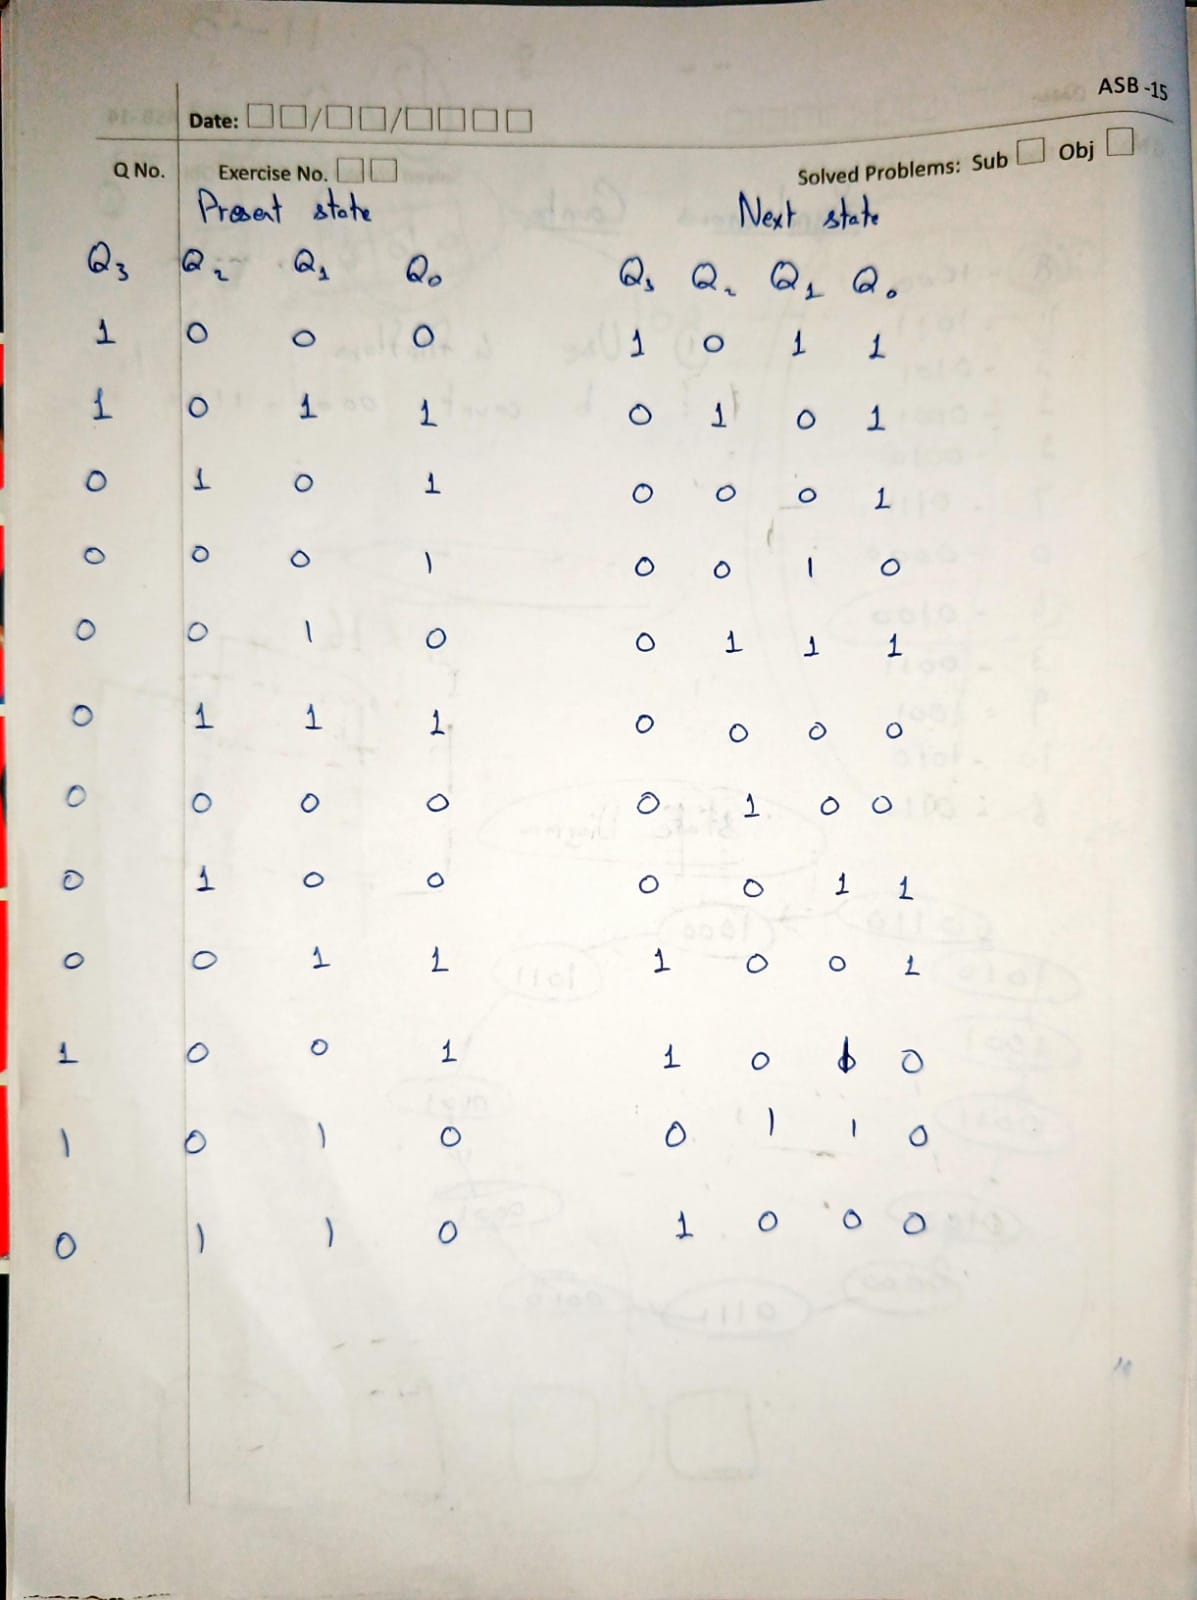 ASB-15
Date:
Q No. Exercise No. Solved Problems: Sub Obj
Present state Next state
Q3 Q2 Q1 Q0 Q3 Q2 Q1 Q0
1 0 0 0 1 0 1 1
1 0 1 1 0 1 0 1
0 1 0 1 0 0 0 1
0 0 0 1 0 0 1 0
0 0 1 0 0 1 1 1
0 1 1 1 0 0 0 0
0 0 0 0 0 1 0 0
0 1 0 0 0 0 1 1
0 0 1 1 1 0 0 1
1 0 0 1 1 0 1 0
1 0 1 0 0 1 1 0
0 1 1 0 1 0 0 0